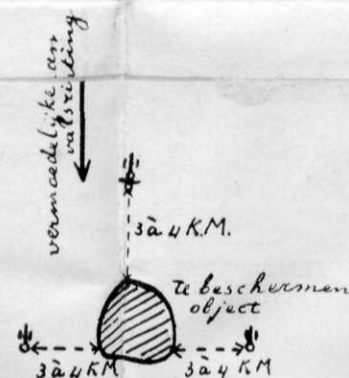 vermoedelijke aan
valsrichting
3 à 4 K.M.
Te beschermen
object
3 à 4 KM
3 à 4 KM